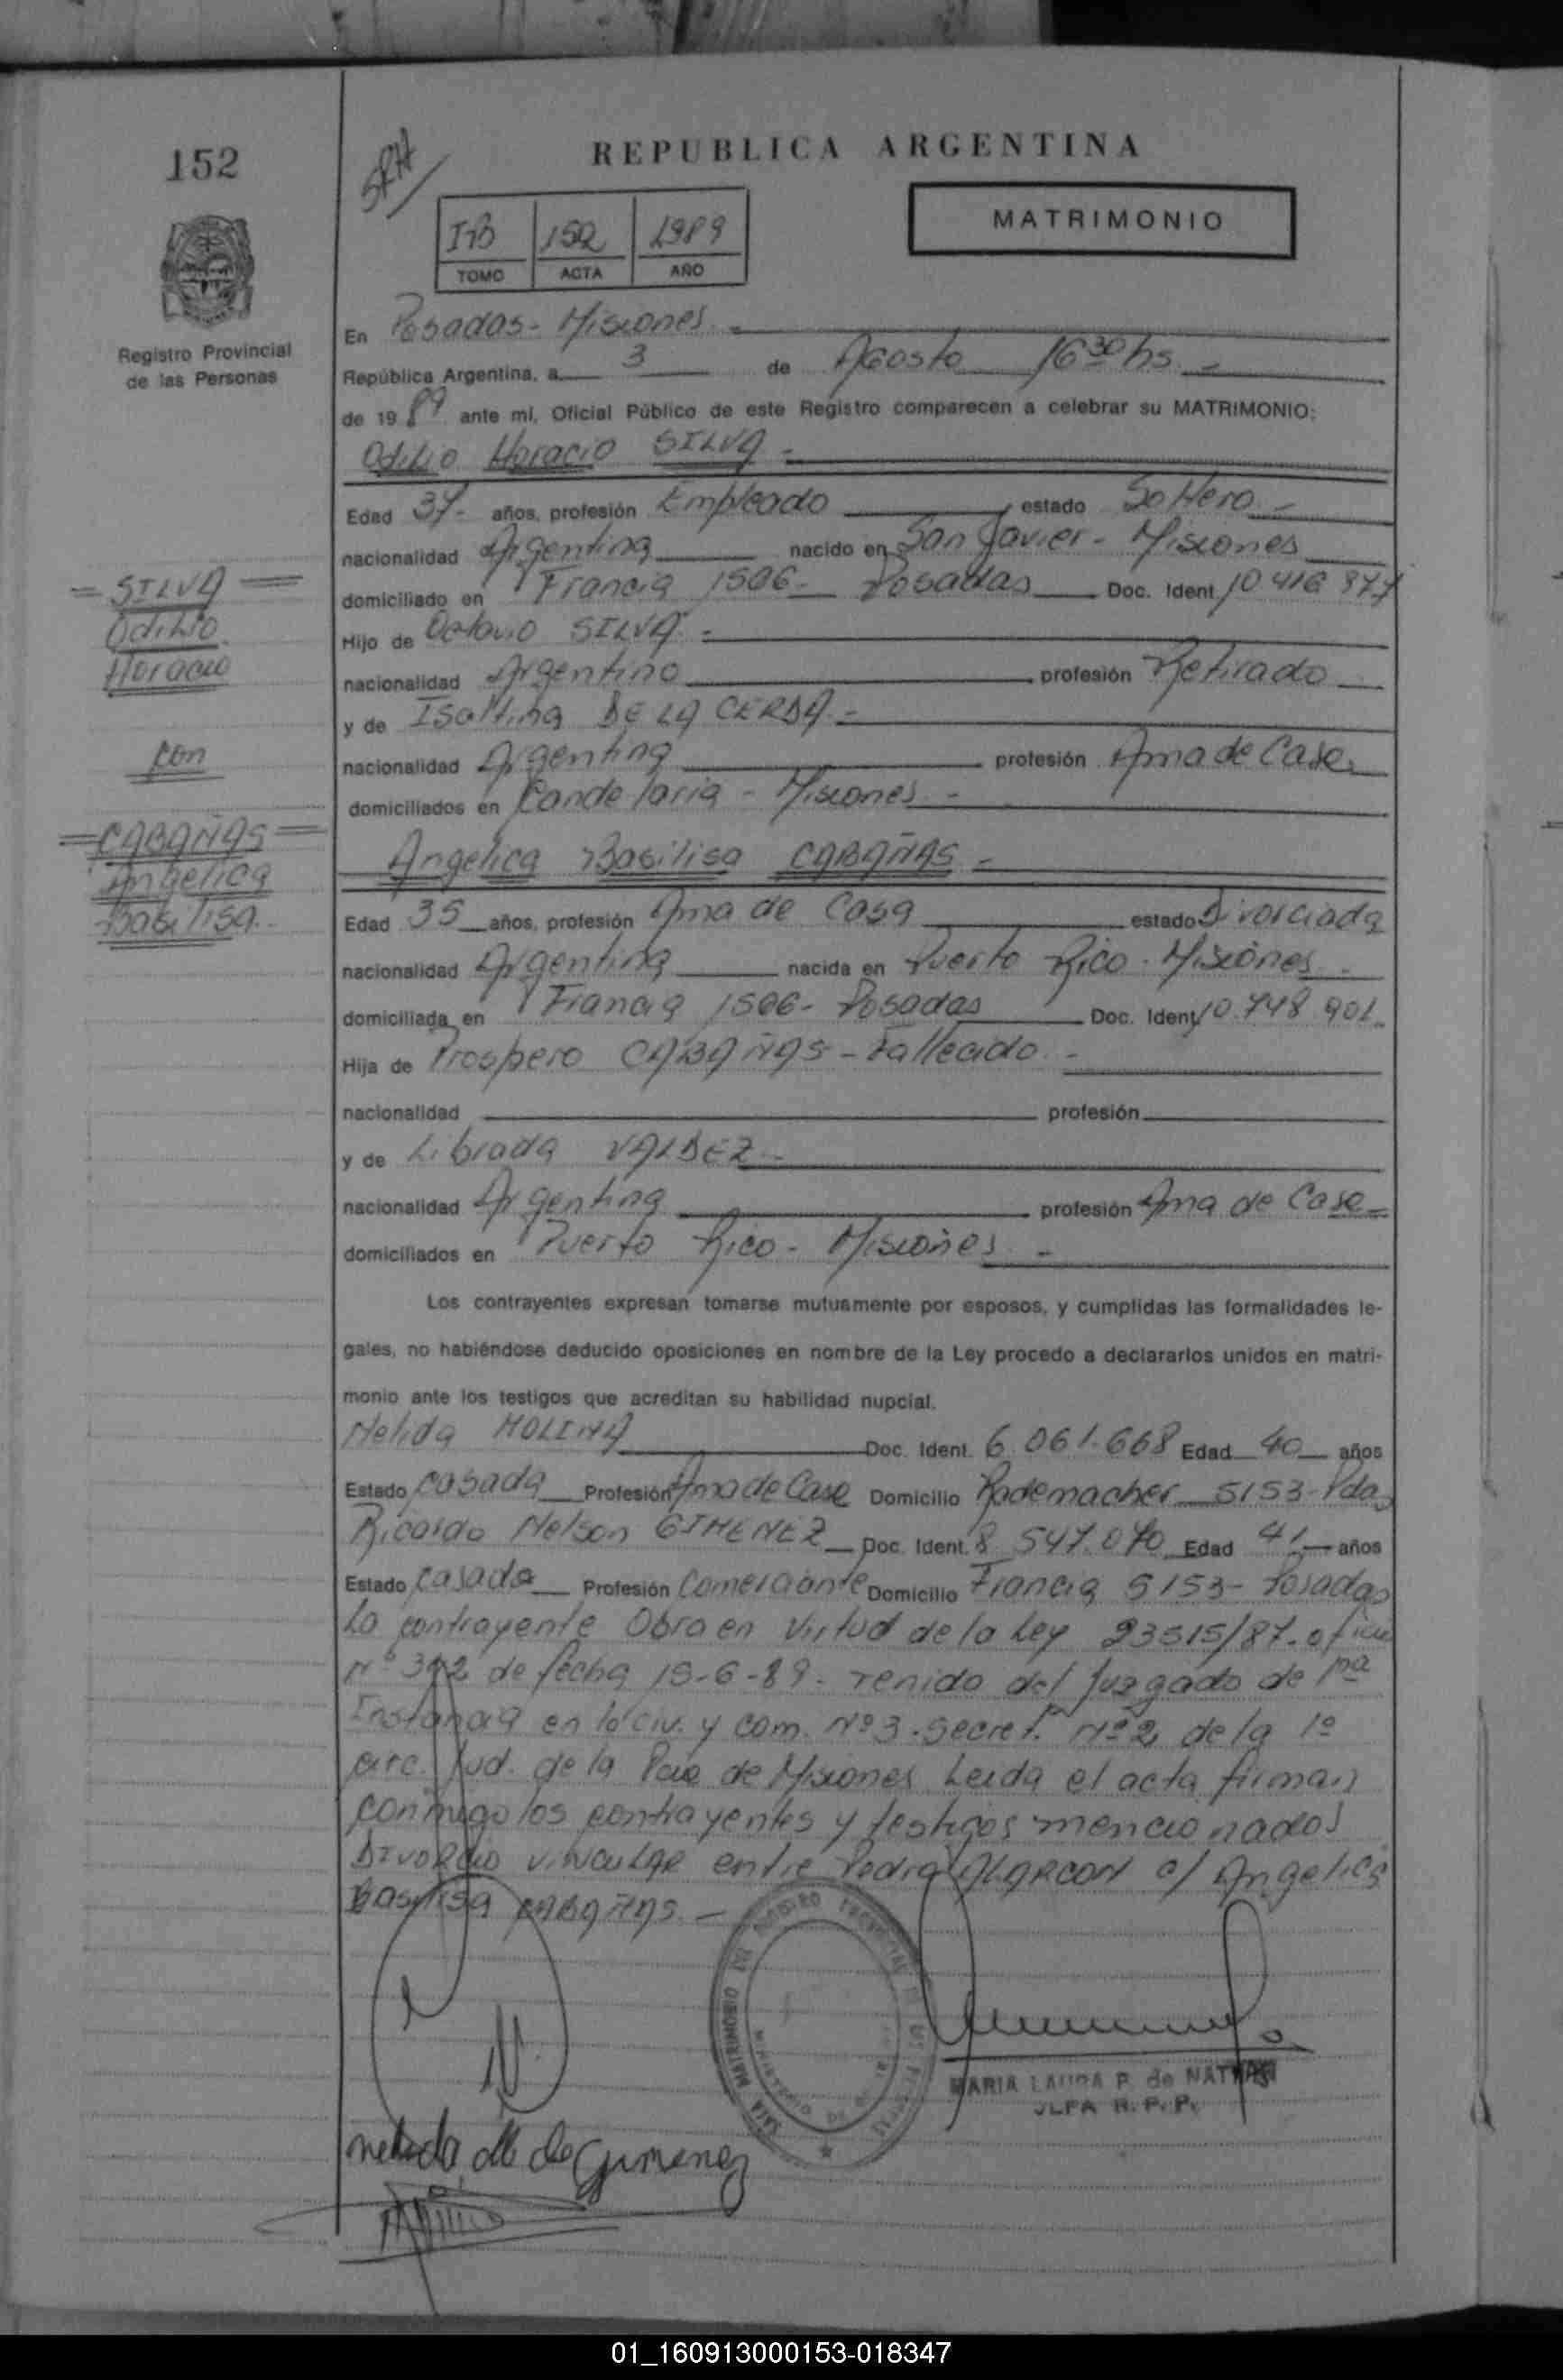 152
REPUBLICA ARGENTINA
MATRIMONIO
152 1989
TOMO ACTA AÑO
Registro Provincial
de las Personas
En Posadas - Misiones -
República Argentina, a 3 de Agosto 16 30 hs. -
de 1989 ante mí, Oficial Público de este Registro comparecen a celebrar su MATRIMONIO:
Odilio Horacio SILVA -
Edad 37- años, profesión Empleado estado Soltero -
nacionalidad Argentina nacido en San Javier - Misiones
domiciliado en Francia 1506 - Posadas Doc. Ident 10 416 877
Hijo de Octavio SILVA -
nacionalidad Argentino profesión Retirado
y de Isaltina DE LA CERDA -
nacionalidad Argentina profesión Ama de Casa
domiciliados en Candelaria - Misiones -
= SILVA =
Odilio
Horacio
con
= CABAÑAS =
Angelica
Basilisa
Angelica Basilisa CABAÑAS -
Edad 35 años, profesión Ama de Casa estado Divorciada
nacionalidad Argentina nacida en Puerto Rico - Misiones -
domiciliada en Francia 1506 - Posadas Doc. Ident 10.748 901
Hija de Prospero CABAÑAS - Fallecido -
nacionalidad profesión
y de Librada VALDEZ -
nacionalidad Argentina profesión Ama de Casa
domiciliados en Puerto Rico - Misiones -
Los contrayentes expresan tomarse mutuamente por esposos, y cumplidas las formalidades le-
gales, no habiéndose deducido oposiciones en nombre de la Ley procedo a declararlos unidos en matri-
monio ante los testigos que acreditan su habilidad nupcial.
Nelida MOLINA Doc. Ident. 6.061.668 Edad 40 años
Estado Casada Profesión Ama de Casa Domicilio Rademacher 5153 - Pdas
Ricardo Nelson GIMENEZ Doc. Ident. 8 547.070 Edad 41 años
Estado Casado Profesión Comerciante Domicilio Francia 5153 - Posadas
La contrayente Obra en Virtud de la Ley 23515/87. oficio
Nº de fecha 15-6-89. venido del Juzgado de 1ra
Instancia en lo Civ. y Com. Nº 3. Secret. Nº 2 de la 1º
circ. Jud. de la Pcia de Misiones Leida el acta firman
conmigo los contrayentes y testigos mencionados
Divorcio vincular entre Pedro ALARCON c/ Angelica
Basilisa CABAÑAS. -
MARIA LAURA P. de
R. P. P.
SALA MATRIMONIO DEL REGISTRO PROVINCIAL DE LAS PERSONAS
Nelida M de Gimenez
01_160913000153-018347